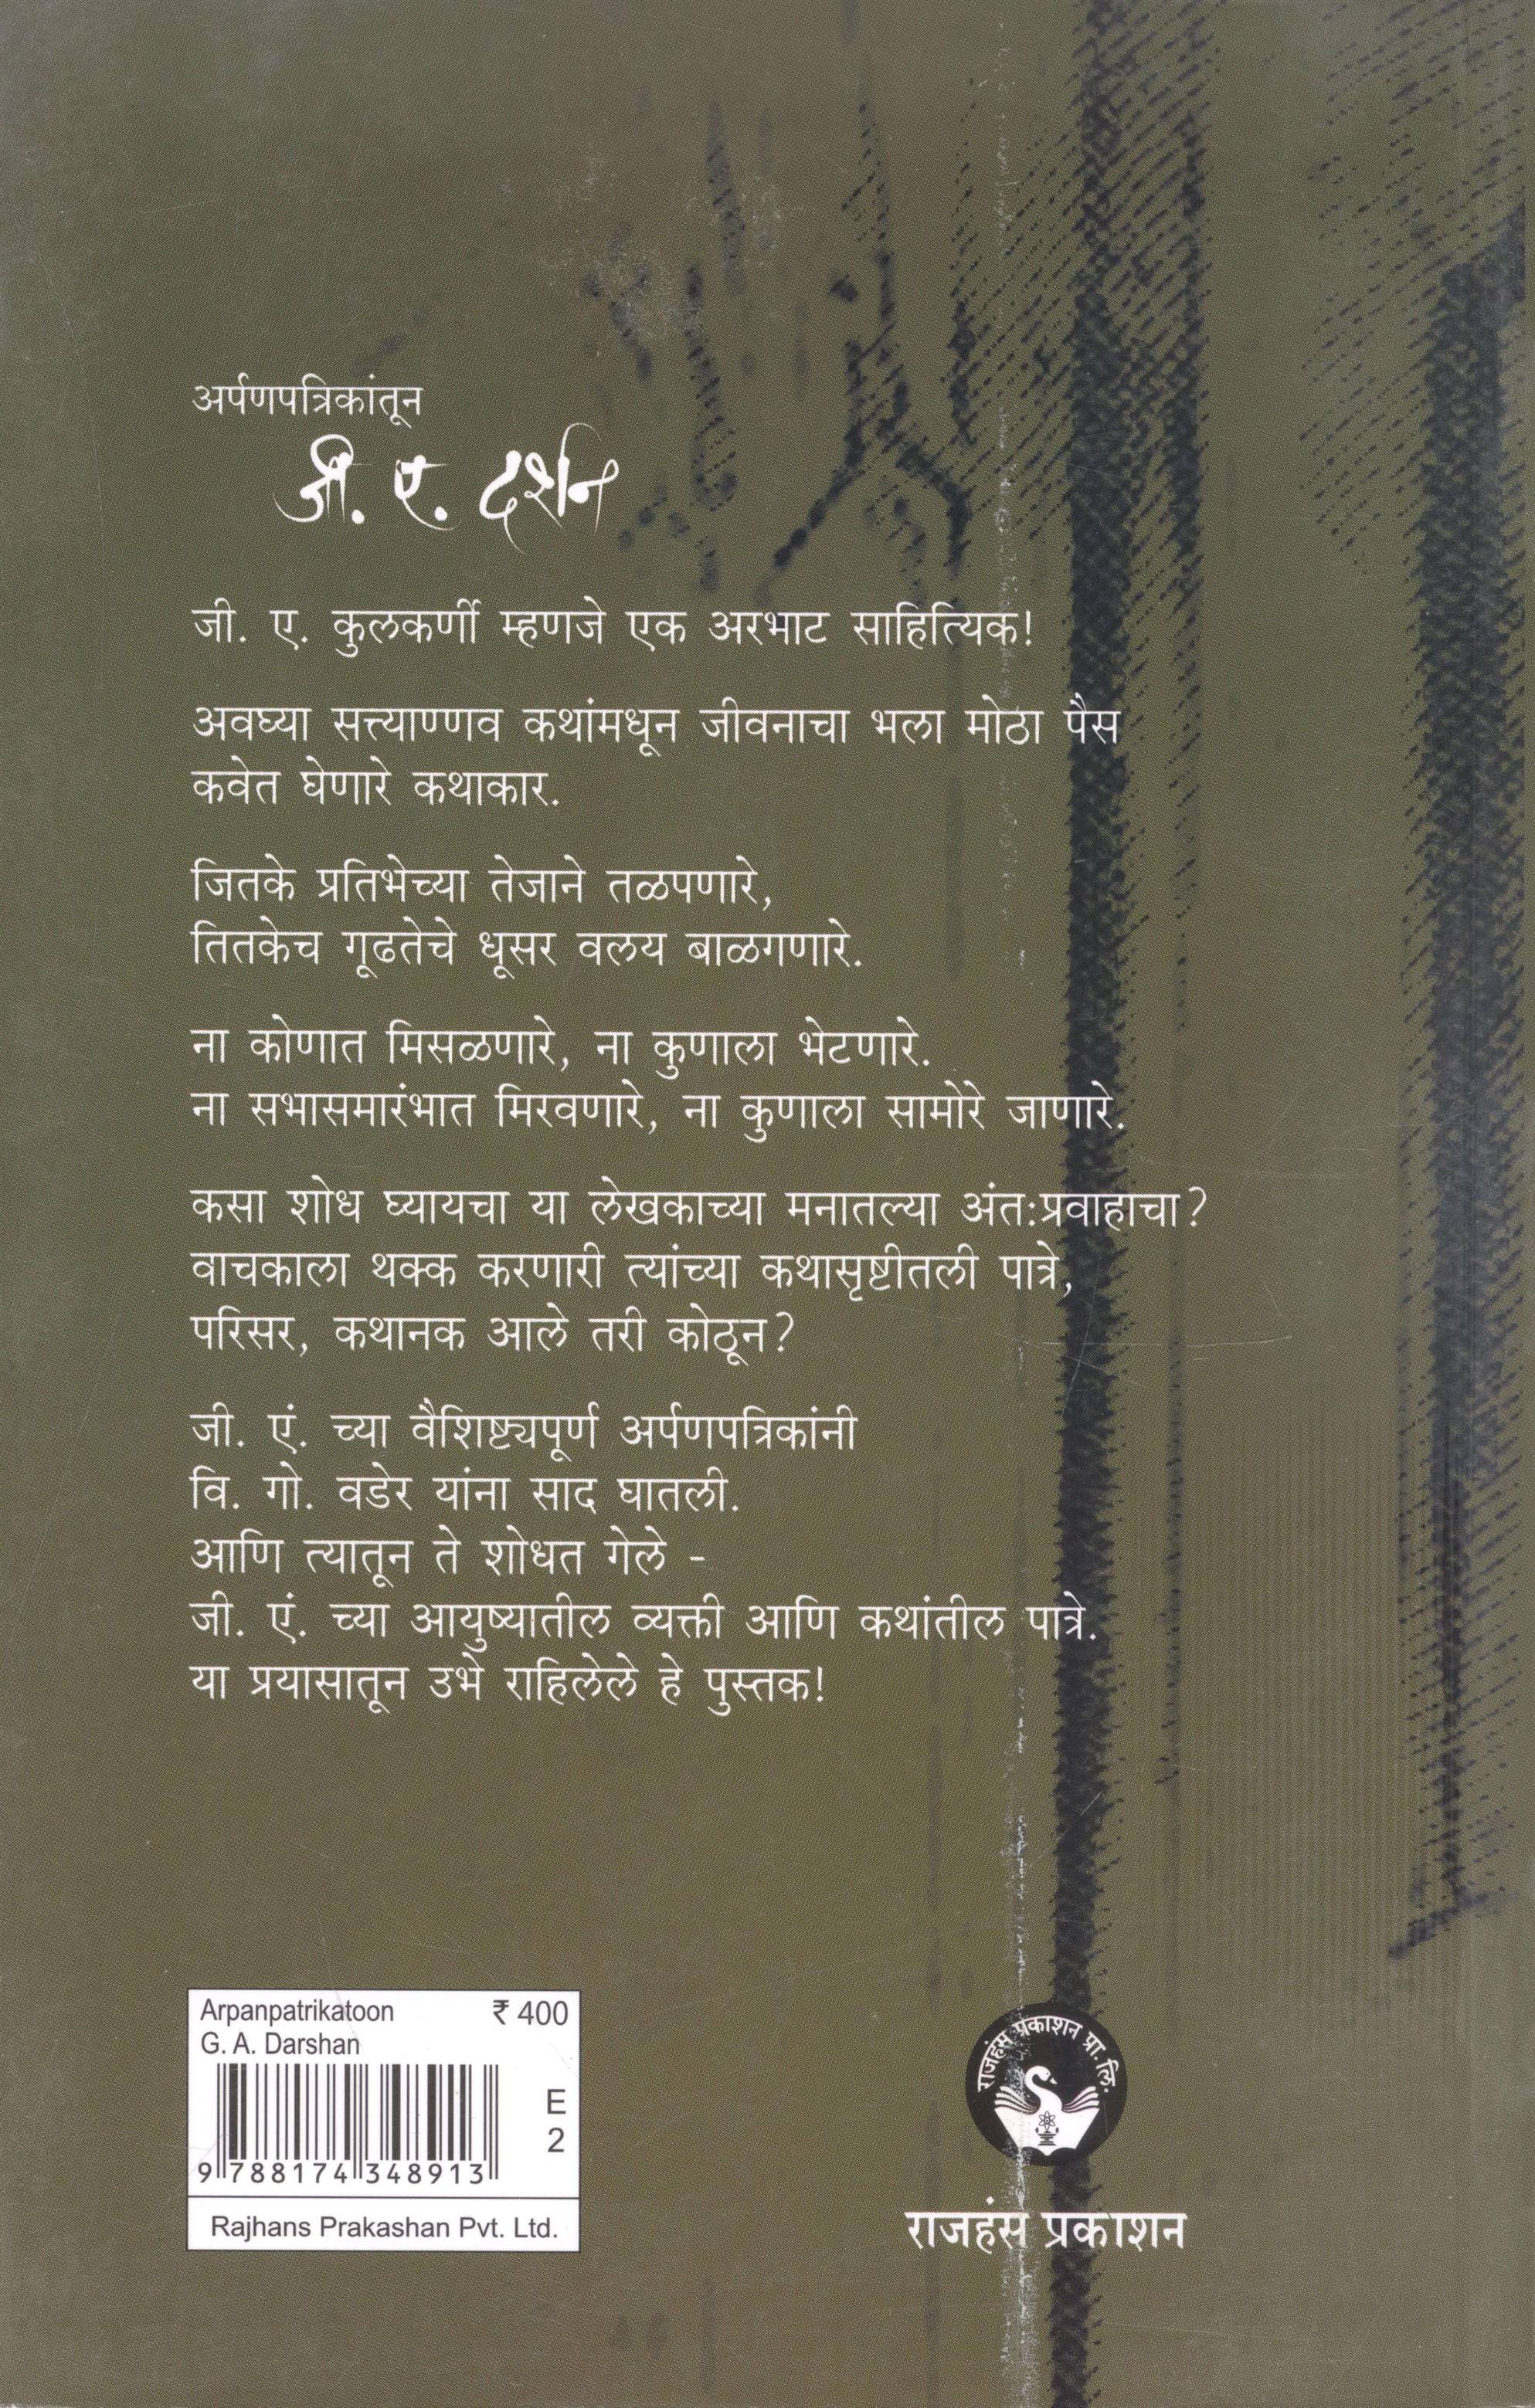 अर्पणपत्रिकांतून
जी. ए. दर्शन
जी. ए. कुलकर्णी म्हणजे एक अरभाट साहित्यिक!
अवघ्या सत्त्याण्णव कथांमधून जीवनाचा भला मोठा पैस
कवेत घेणारे कथाकार.
जितके प्रतिभेच्या तेजाने तळपणारे,
तितकेच गूढतेचे धूसर वलय बाळगणारे.
ना कोणात मिसळणारे, ना कुणाला भेटणारे.
ना सभासमारंभात मिरवणारे, ना कुणाला सामोरे जाणारे.
कसा शोध घ्यायचा या लेखकाच्या मनातल्या अंतःप्रवाहाचा?
वाचकाला थक्क करणारी त्यांच्या कथासृष्टीतली पात्रे,
परिसर, कथानक आले तरी कोठून?
जी. एं. च्या वैशिष्ट्यपूर्ण अर्पणपत्रिकांनी
वि. गो. वडेर यांना साद घातली.
आणि त्यातून ते शोधत गेले -
जी. एं. च्या आयुष्यातील व्यक्ती आणि कथांतील पात्रे.
या प्रयासातून उभे राहिलेले हे पुस्तक!
Arpanpatrikatoon ₹ 400
G. A. Darshan
E
2
9 788174 348913
Rajhans Prakashan Pvt. Ltd.
राजहंस प्रकाशन प्रा. लि.
राजहंस प्रकाशन